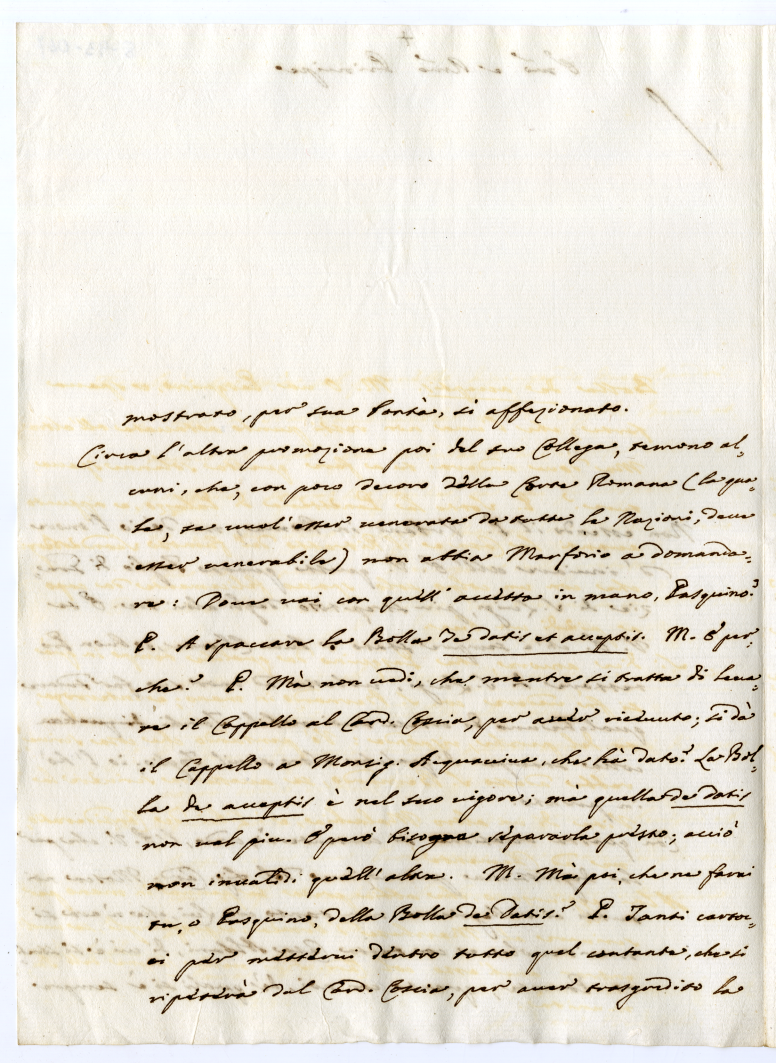 mostrato, per sua bontà, sì affezionato.
Circa l'altra promozione poi del suo Collega, temono al-
cuni, che, con poco decoro della Corte Romana (la qua-
le, se vuol' esser venerata da tutte le Nazioni, deve
esser venerabile) non abbia Marforio a domanda-
re: Dove vai con quell' accetta in mano, Pasquino?
P. A spaccare la Bolla de datis et acceptis. M. E per-
che? P. Mà non vedi, che mentre si tratta di leva-
re il Cappello al Card. Coscia, per aver ricevuto; si dà
il Cappello a Monsig. Acquaviva, che hà dato? La Bol-
la de acceptis è nel suo vigore; mà quella de datis
non val piu. E però bisogna separarla presto; acciò
non invalidi quell' altra. M. Mà poi, che ne farai
tu, o Pasquino, della Bolla de Datis? P. Tanti cartoc-
ci per mettervi dentro tutto quel contante, che si
ripeterà dal Card. Coscia, per aver trasgredito la